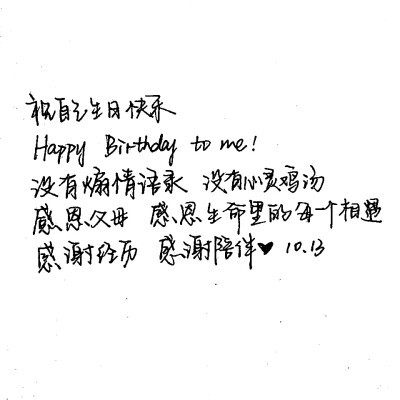 祝自己生日快乐
Happy Birthday to me!
没有煽情语录 没有心灵鸡汤
感恩父母 感恩生命里的每个相遇
感谢经历 感谢陪伴♥ 10.13